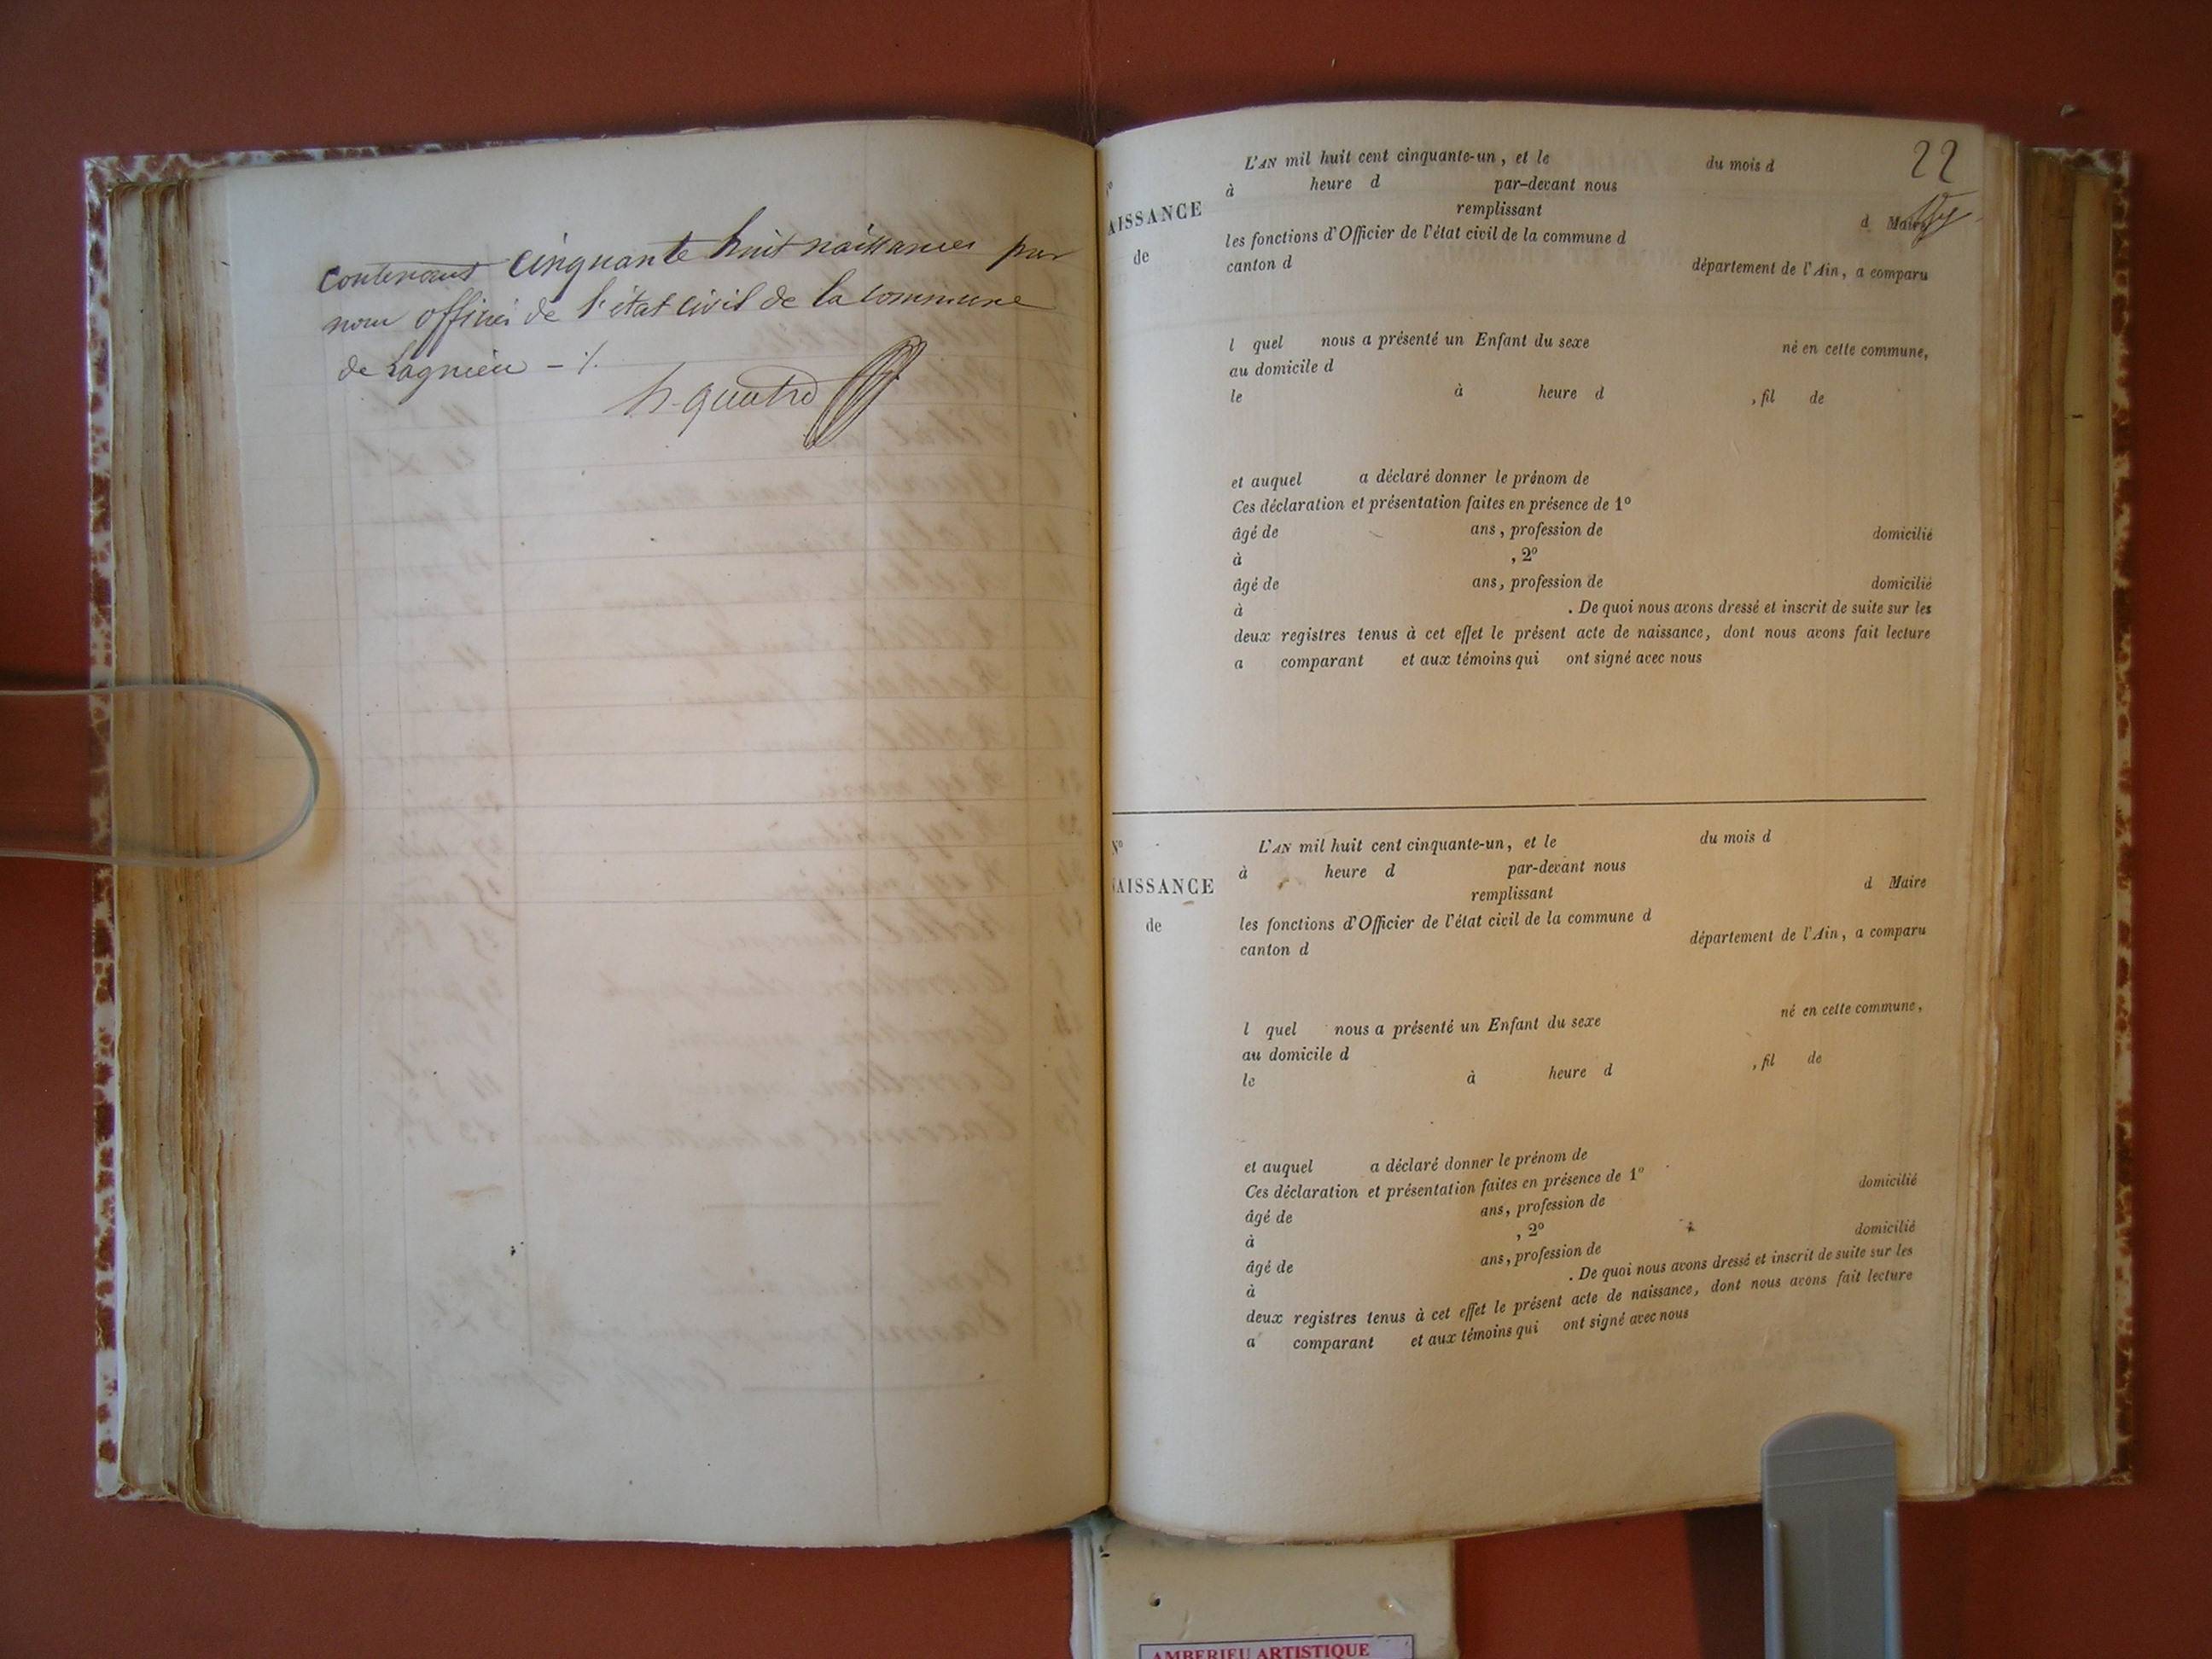 contenant cinquante huit naissances par
nous officier de l'état civil de la commune
de Lagnieu -/.
22
L'AN mil huit cent cinquante-un, et le du mois d
à heure d par-devant nous
remplissant d Maire
AISSANCE
de
les fonctions d'Officier de l'état civil de la commune d
canton d département de l'Ain, a comparu
l quel nous a présenté un Enfant du sexe né en cette commune,
au domicile d
le à heure d , fil de
et auquel a déclaré donner le prénom de
Ces déclaration et présentation faites en présence de 1º
âgé de ans, profession de domicilié
à , 2º
âgé de ans, profession de domicilié
à . De quoi nous avons dressé et inscrit de suite sur les
deux registres tenus à cet effet le présent acte de naissance, dont nous avons fait lecture
a comparant et aux témoins qui ont signé avec nous
Nº
AISSANCE
de
L'AN mil huit cent cinquante-un, et le du mois d
à heure d par-devant nous
remplissant d Maire
les fonctions d'Officier de l'état civil de la commune d
canton d département de l'Ain, a comparu
l quel nous a présenté un Enfant du sexe né en cette commune,
au domicile d
le à heure d , fil de
et auquel a déclaré donner le prénom de
Ces déclaration et présentation faites en présence de 1º
âgé de ans, profession de domicilié
à , 2º
âgé de ans, profession de domicilié
à . De quoi nous avons dressé et inscrit de suite sur les
deux registres tenus à cet effet le présent acte de naissance, dont nous avons fait lecture
a comparant et aux témoins qui ont signé avec nous
AMBERIEU ARTISTIQUE